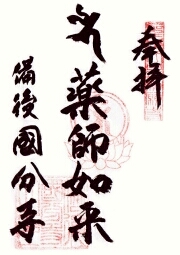 奉拝
薬師如来
備後國分寺